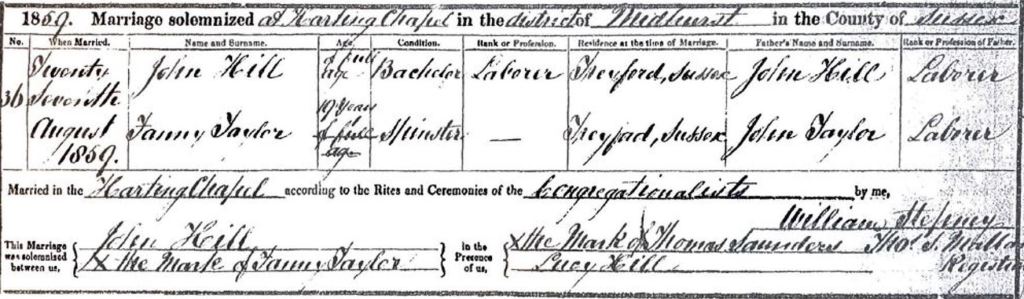 1859. Marriage solemnized at Harting Chapel in the district of Midhurst in the County of Sussex
No. When Married. Name and Surname. Age. Condition. Rank or Profession. Residence at the time of Marriage. Father's Name and Surname. Rank or Profession of Father.
36 Twenty Seventh August 1859. John Hill of full age Bachelor Laborer Treyford, Sussex John Hill Laborer
Fanny Taylor 19 Years of full age Spinster — Treyford, Sussex John Taylor Laborer
Married in the Harting Chapel according to the Rites and Ceremonies of the Congregationalists by me,
William Stepney
This Marriage was solemnized between us, John Hill
X the Mark of Fanny Taylor
in the Presence of us, X the Mark of Thomas Saunders
Lucy Hill
Thos. S.
Registrar